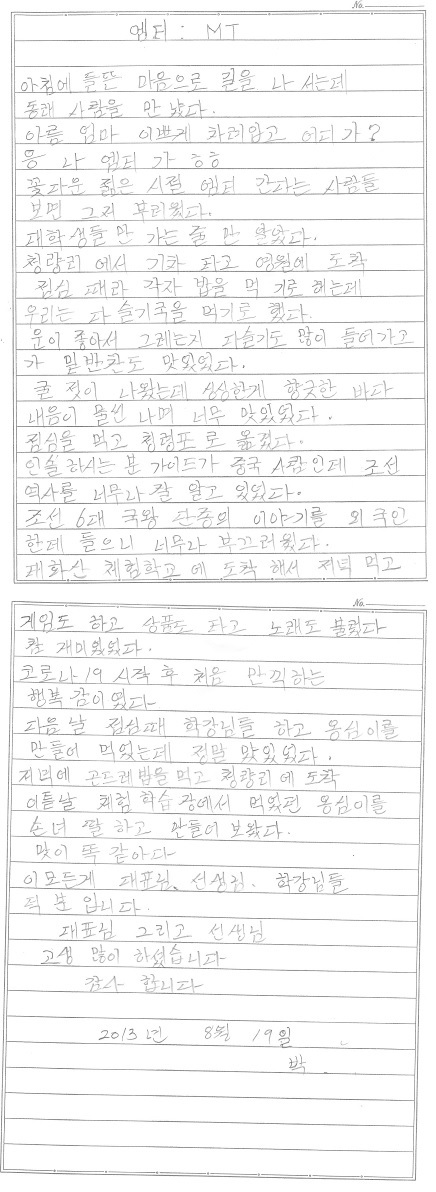 No.
엠티 : MT
아침에 들뜬 마음으로 길을 나 서는데
동래 사람을 만 났다.
아름 엄마 이쁘게 차려입고 어디 가?
응 나 엠티 가 ㅎㅎ
꽃다운 젊은 시절 엠티 간다는 사람들
보면 그저 부러웠다.
대학생들 만 가는 줄 만 알았다.
청량리 에서 기차 타고 영월에 도착
점심 때라 각자 밥을 먹 기로 하는데
우리는 다 슬기국을 먹기로 했다.
운이 좋아서 그레는지 다슬기도 많이 들어가고
가 밑반찬도 맛있었다.
굴 젓이 나왔는데 싱싱한게 향긋한 바다
내음이 물신 나며 너무 맛있었다.
점심을 먹고 청령포 로 옮겼다.
인솔 하시는 분 가이드가 중국 사람 인데 조선
역사를 너무나 잘 알고 있었다.
조선 6대 국왕 단종의 이야기를 외 국인
한데 들으니 너무나 부끄러웠다.
태화산 체험학교 에 도착 해서 저녁 먹고
No.
게임도 하고 상품도 타고 노래도 불렀다
참 재미있었다.
코로나19 시작 후 처음 만끽하는
행복 감이 였다
다음 날 점심때 학강님들 하고 옹심이를
만들어 먹었는데 정말 맛있었다.
저녁에 곤드레밥을 먹고 청량리 에 도착
이튿날 체험 학습 장에서 먹었던 옹심이를
손녀 딸 하고 만들어 보왔다.
맛이 똑 같아다
이모든게 대표님, 선생님, 학강님들
덕 분 입니다.
대표님 그리고 선생님
고생 많이 하셨습니다
감사 합니다
2013년 8월 19일
박